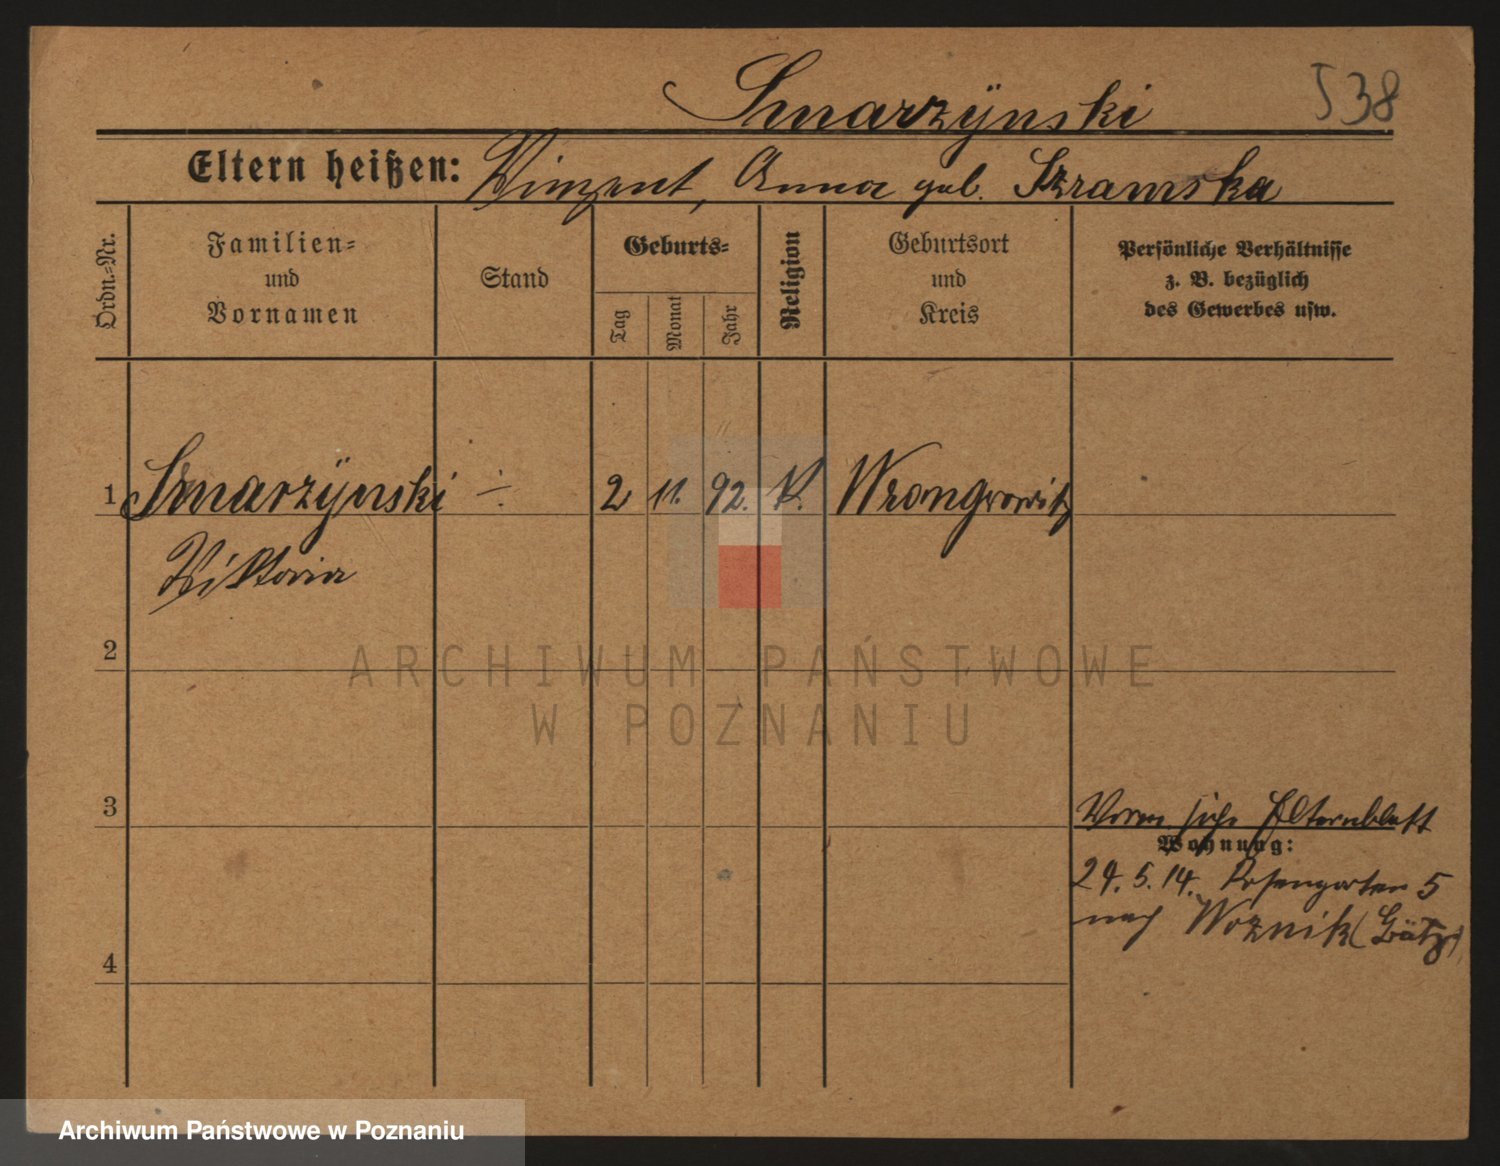 Smarzÿnski
538
Eltern heißen: Vinzent, Anna geb. Szramska
Ordn.=Nr.
Familien=
und
Vornamen
Stand
Geburts=
Tag
Monat
Jahr
Religion
Geburtsort
und
Kreis
Persönliche Verhältnisse
z. B. bezüglich
des Gewerbes usw.
1 Smarzÿnski ÷ 2 11. 92. K. Wrongrowitz
Viktoria
2
ARCHIWUM PAŃSTWOWE
W POZNANIU
3
siehe Elternblatt
Wohnung:
24. 5. 14. Rosengarten 5
nach Woznik (Grätz)
4
Archiwum Państwowe w Poznaniu